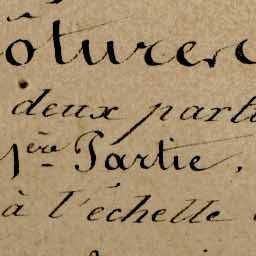 ôturen
deux parti
1ère Partie.
à l'échelle